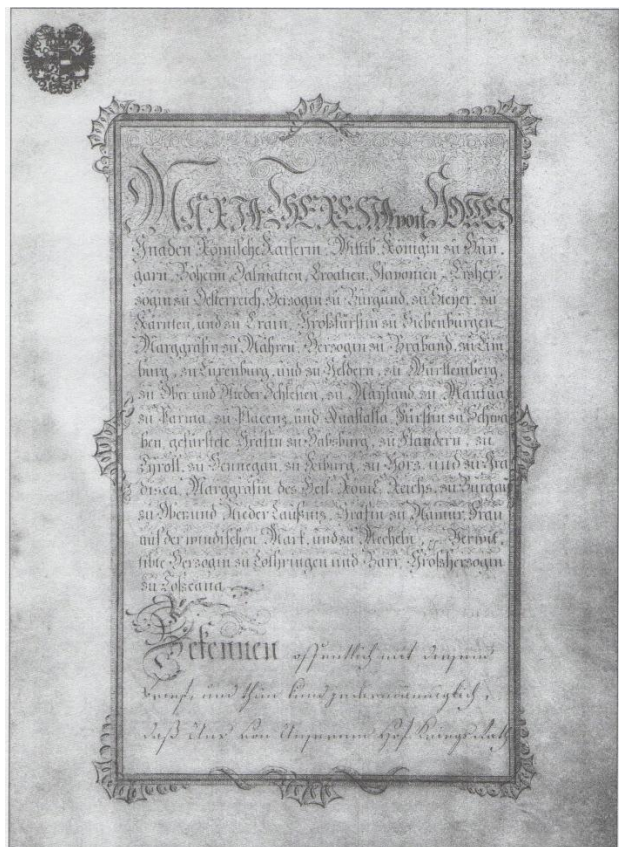 MARIA THERESIA von GOTTES
Gnaden Römische Kaiserin, Wittib, Königin zu Hun,
garn, Boheim, Dalmatien, Croatien, Slavonien, Erzher,
zogin zu Oesterreich, Herzogin zu Burgund, zu Steyer, zu
Kärnten, und zu Crain, Großfürstin zu Siebenbürgen
Marggräfin zu Mähren, Herzogin zu Braband, zu Lim
burg, zu Luxenburg, und zu Geldern, zu Württemberg,
zu Ober und Nieder Schlesien, zu Mayland, zu Mantua,
zu Parma, zu Placenz, und Quastalla, Fürstin zu Schwa
ben, gefürstete Gräfin zu Habsburg, zu Flandern, zu
Tyroll, zu Hennegau, zu Kiburg, zu Görz, und zu Gra
disca, Marggräfin des Heil. Röm. Reichs, zu Burgau
zu Ober und Nieder Laußniz, Gräfin zu Namur, Frau
auf der windischen Mark, und zu Mecheln, Verwit,
tibte Herzogin zu Lothringen und Barr, Großherzogin
zu Toscana
Bekennen offentlich mit diesem
Brief, und thun kund jedermänniglich,
daß Uns von Unserem Hof Kriegs Rath